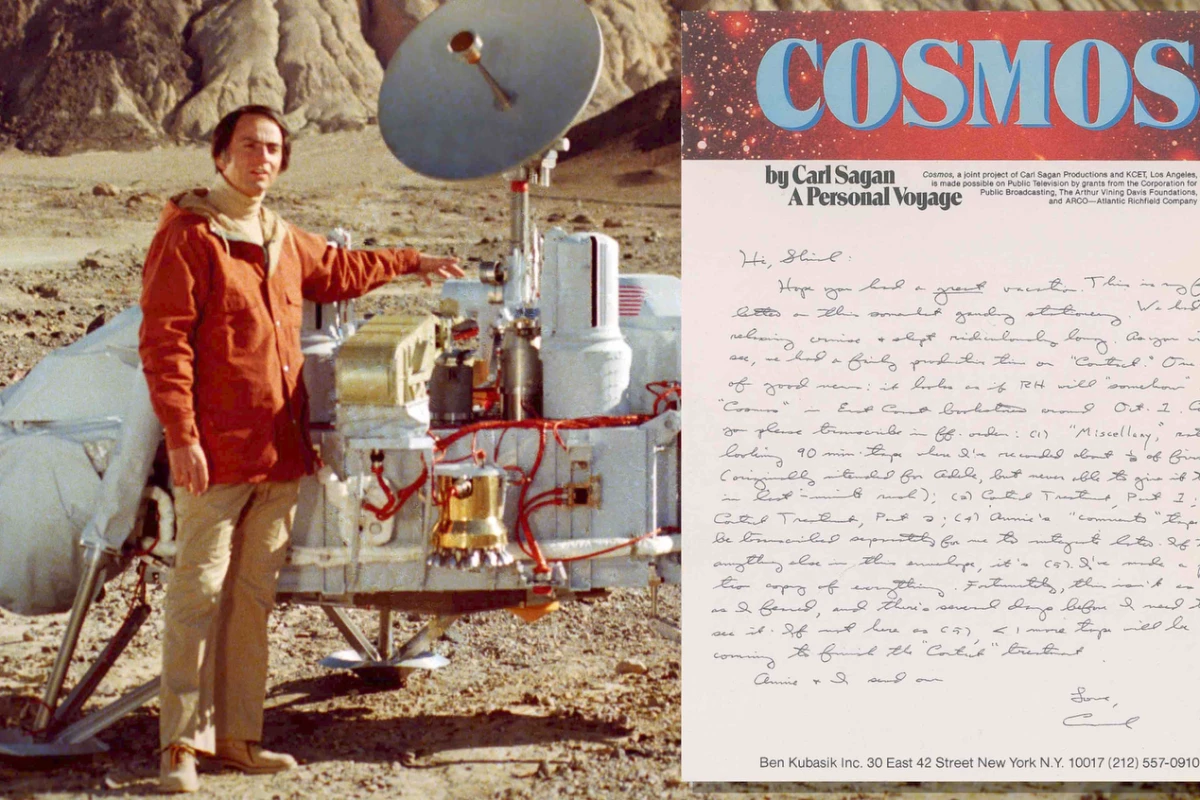 COSMOS
by Carl Sagan
A Personal Voyage
Cosmos, a joint project of Carl Sagan Productions and KCET, Los Angeles,
is made possible on Public Television by grants from the Corporation for
Public Broadcasting, The Arthur Vining Davis Foundations,
and ARCO—Atlantic Richfield Company
Hi,
Hope you had a great vacation. This is my
letter on this somewhat gaudy stationery. We had
relaxing cruise + slept ridiculously long. As you
see, we had a fairly productive time on "Contact."
of good news: it looks as if RH will "somehow"
"Cosmos" in East Coast bookstores around Oct. 1.
you please transcribe in ff. order: (1) "Miscellany,"
looking 90 min. tape where I've recorded about of
(originally intended for Adele, but never able to give it
in last-minute rush); (2) Contact Treatment, Part 1
Contact Treatment, Part 2; (4) Annie's "comments" tape
be transcribed separately for me to integrate later. If
anything else in this envelope, it's (5). I've made a
copy of everything. Fortunately, this isn't
as I feared, and there's several days before I need
see it. If not here as (5), < 1 more tape will be
coming to finish the "Contact" treatment.
Annie + I send our
Love,
Carl
Ben Kubasik Inc. 30 East 42 Street New York N.Y. 10017 (212) 557-0910